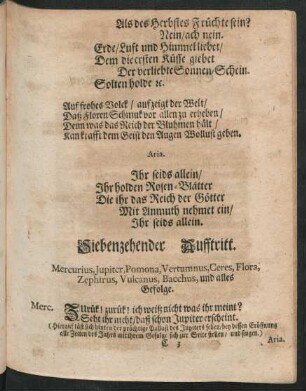 Als des Herbstes Früchte sein?
Nein/ach nein.
Erde/Luft und Himmel liebet/
Dem die ersten Küsse giebet
Der verliebte Sonnen-Schein.
Solten holde ꝛc.
Auf frohes Volck/ auf zeigt der Welt/
Daß Floren Schmuk vor allen zu erheben/
Denn was das Reich der Bluhmen hält/
Kan krafft dem Geist den Augen Wollust geben.
Aria.
Ihr seids allein/
Ihr holden Rosen-Blätter
Die ihr das Reich der Götter
Mit Anmuth nehmet ein/
Ihr seids allein.
Siebenzehender Aufftritt.
Mercurius, Jupiter, Pomona, Vertumnus, Ceres, Flora,
Zephirus, Vulcanus, Bacchus, und alles
Gefolge.
Merc. Zurük! zurük! ich weiß nicht was ihr meint?
Seht ihr nicht/daß schon Jupiter erscheint.
(Hierauf läst sich hinten der prächtige Pallast des Jupiters sehen, bey dessen Eröffnung
alle Zeiten des Jahrs mit ihrem Gefolge sich zur Seite stellen/ und singen.)
C Aria.